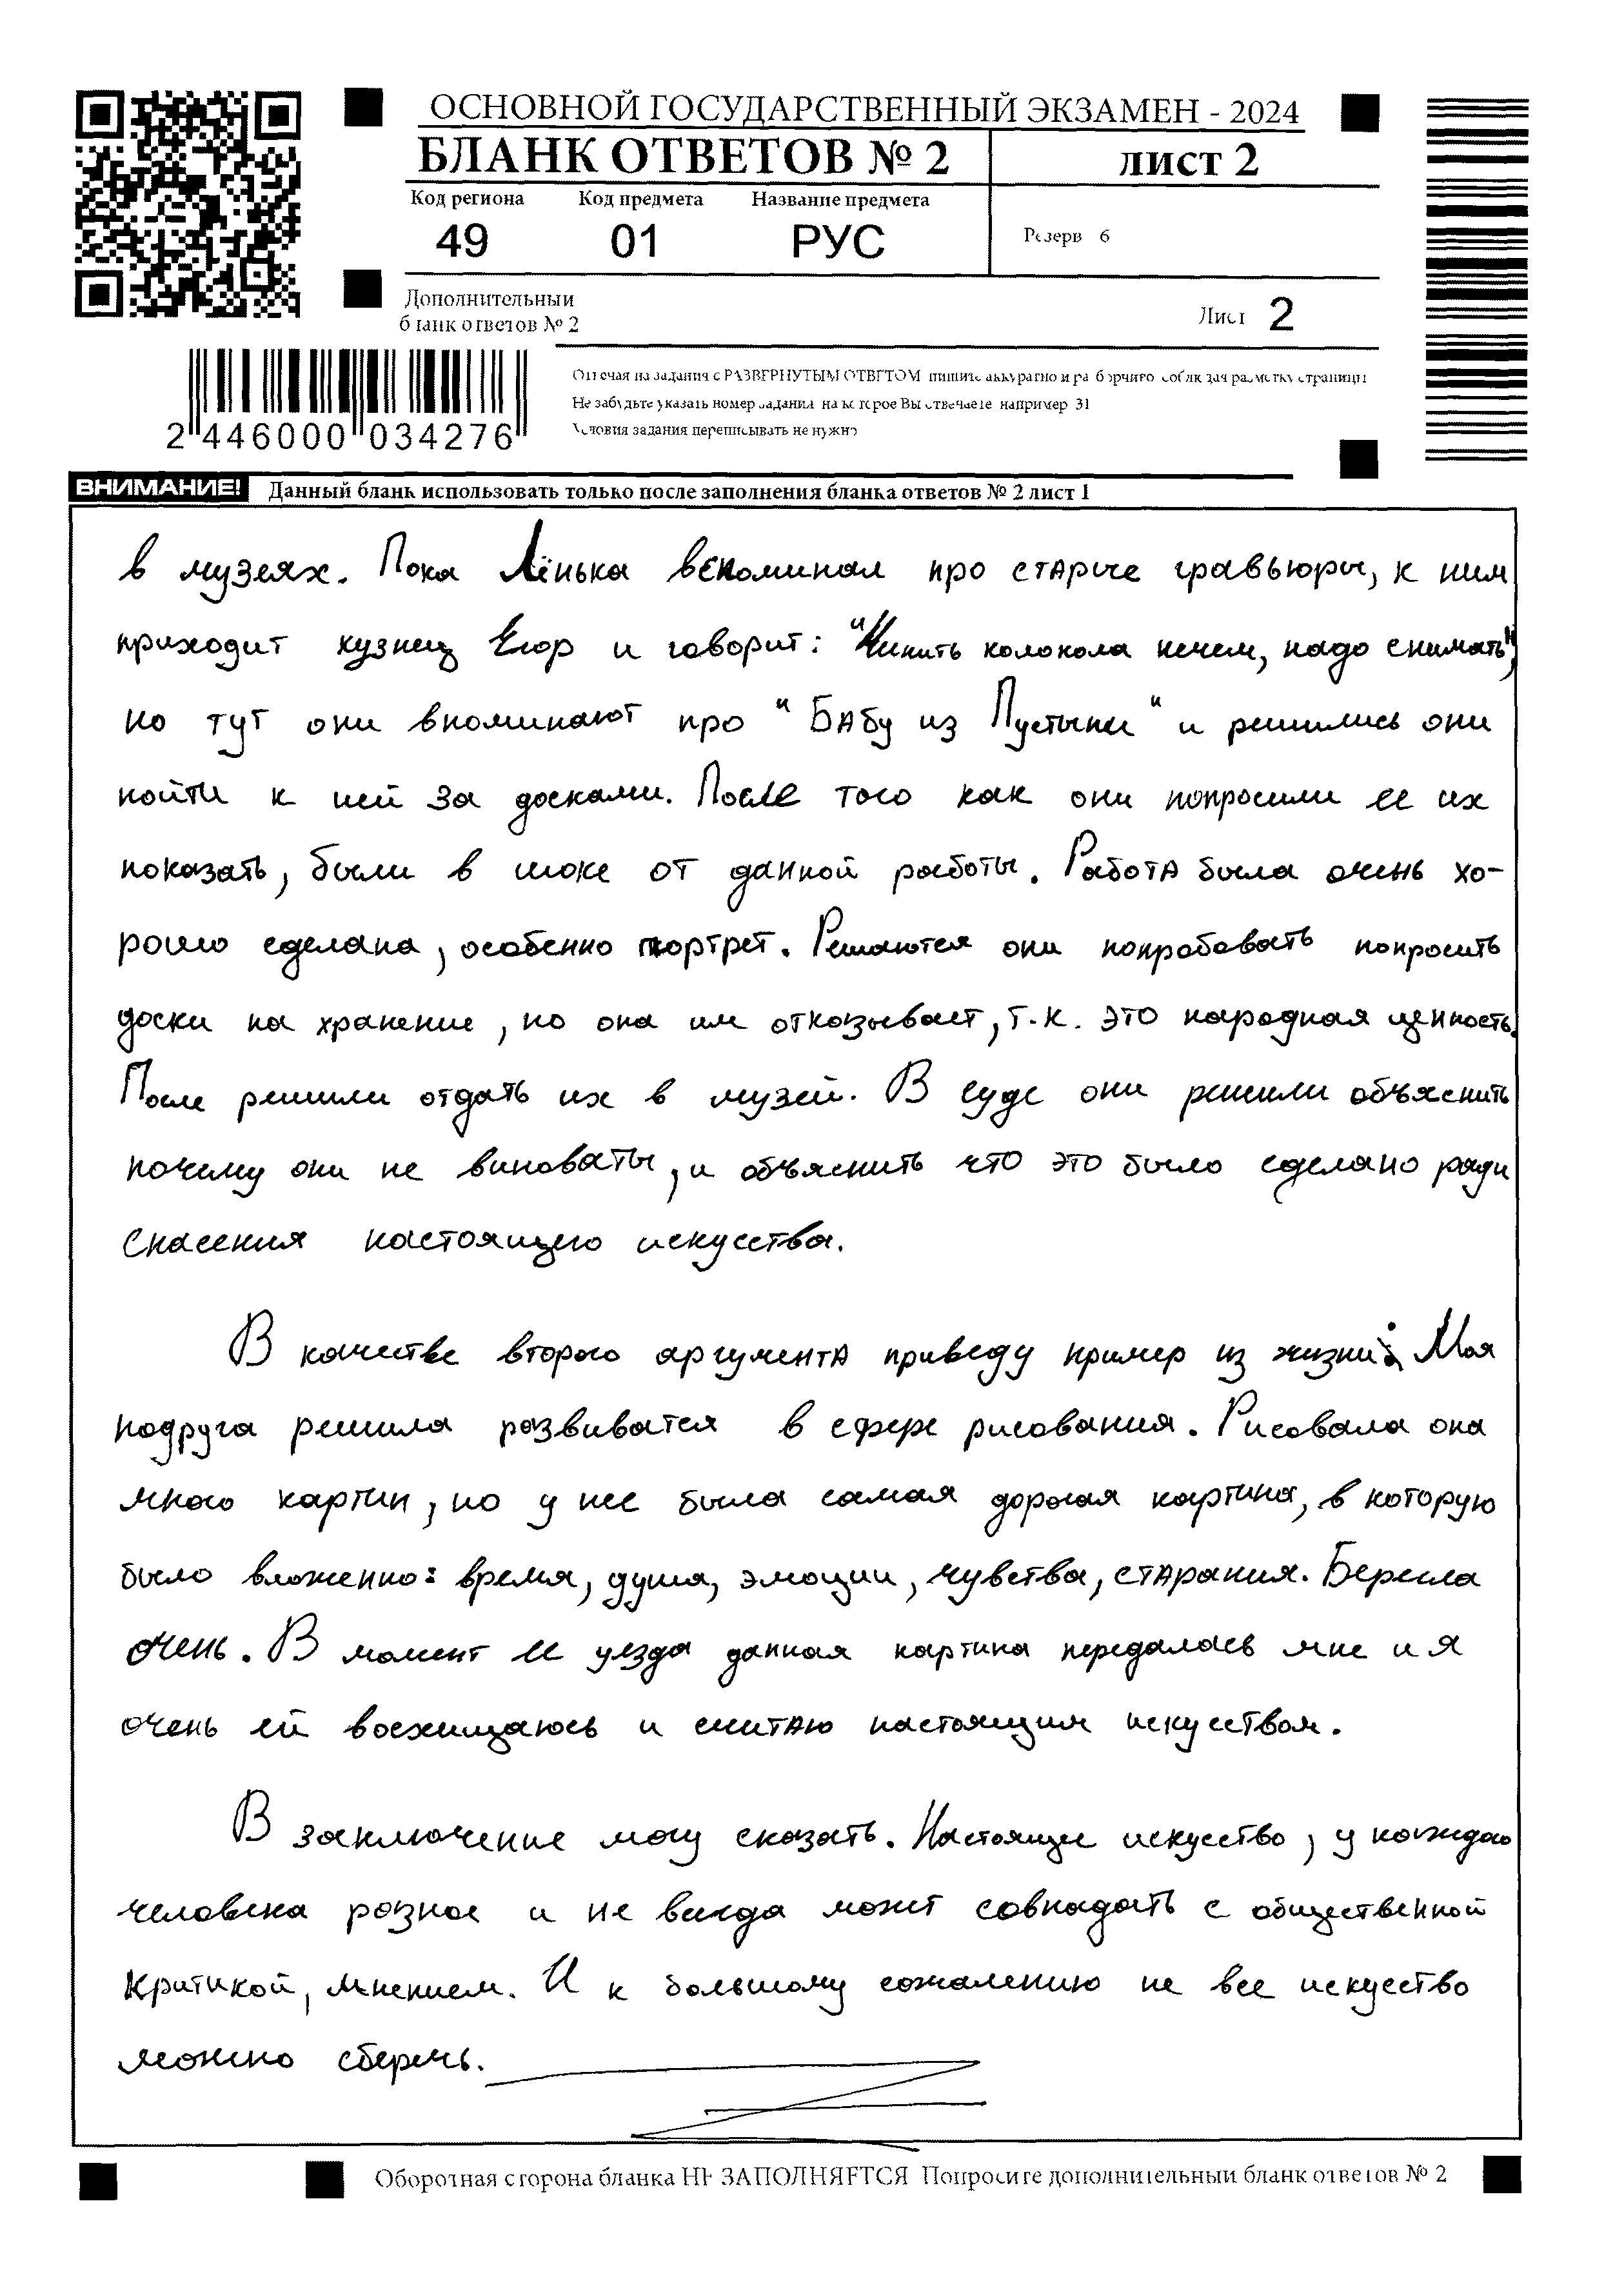 ОСНОВНОЙ ГОСУДАРСТВЕННЫЙ ЭКЗАМЕН - 2024
БЛАНК ОТВЕТОВ № 2
ЛИСТ 2
Код региона Код предмета Название предмета
49 01 РУС
Резерв 6
Дополнительный
бланк ответов № 2
Лист 2
Отвечая на задания с РАЗВЕРНУТЫМ ОТВЕТОМ пишите аккуратно и разборчиво соблюдая разметку страницы
Не забудьте указать номер задания на которое Вы отвечаете например 31
Условия задания переписывать не нужно
2 446000 034276
ВНИМАНИЕ! Данный бланк использовать только после заполнения бланка ответов № 2 лист 1
в музеях. Пока Лёнька вспоминал про старые гравьюры, к ним
приходит кузнец Егор и говорит: "Чинить колокола нечем, надо снимать",
но тут они впоминают про "Бабу из Пустыни" и решились они
пойти к ней за досками. После того как они попросили ее их
показать, были в шоке от данной работы. Работа была очень хо-
рошо сделана, особенно портрет. Решаются они попробовать попросить
доски на хранение, но она им отказывает, т.к. это народная ценность.
После решили отдать их в музей. В суде они решили объяснить
почему они не виноваты, и объяснить что это было сделано ради
спасения настоящего искусства.
В качестве второго аргумента приведу пример из жизни. Моя
подруга решила развиватся в сфере рисования. Рисовала она
много картин, но у нее была самая дорогая картина, в которую
было вложенно: время, душа, эмоции, чувства, старания. Берегла
очень. В момент ее уезда данная картина передалась мне и я
очень ей восхищаюсь и считаю настоящим искуством.
В заключение могу сказать. Настоящее искусство, у каждого
человека разное и не всегда может совпадать с общественной
критикой, мнением. И к большому сожалению не все искусство
можно сберечь.
Оборотная сторона бланка НЕ ЗАПОЛНЯЕТСЯ Попросите дополнительный бланк ответов № 2